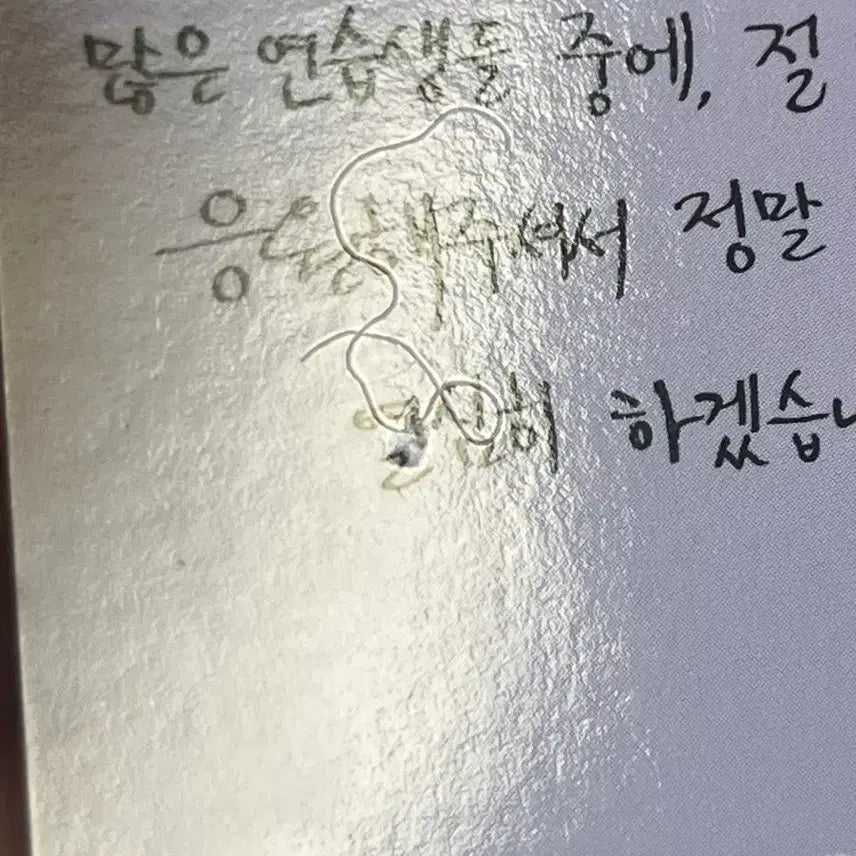 많은 연습생들 중에, 절
응원해주셔서 정말
열심히 하겠습니